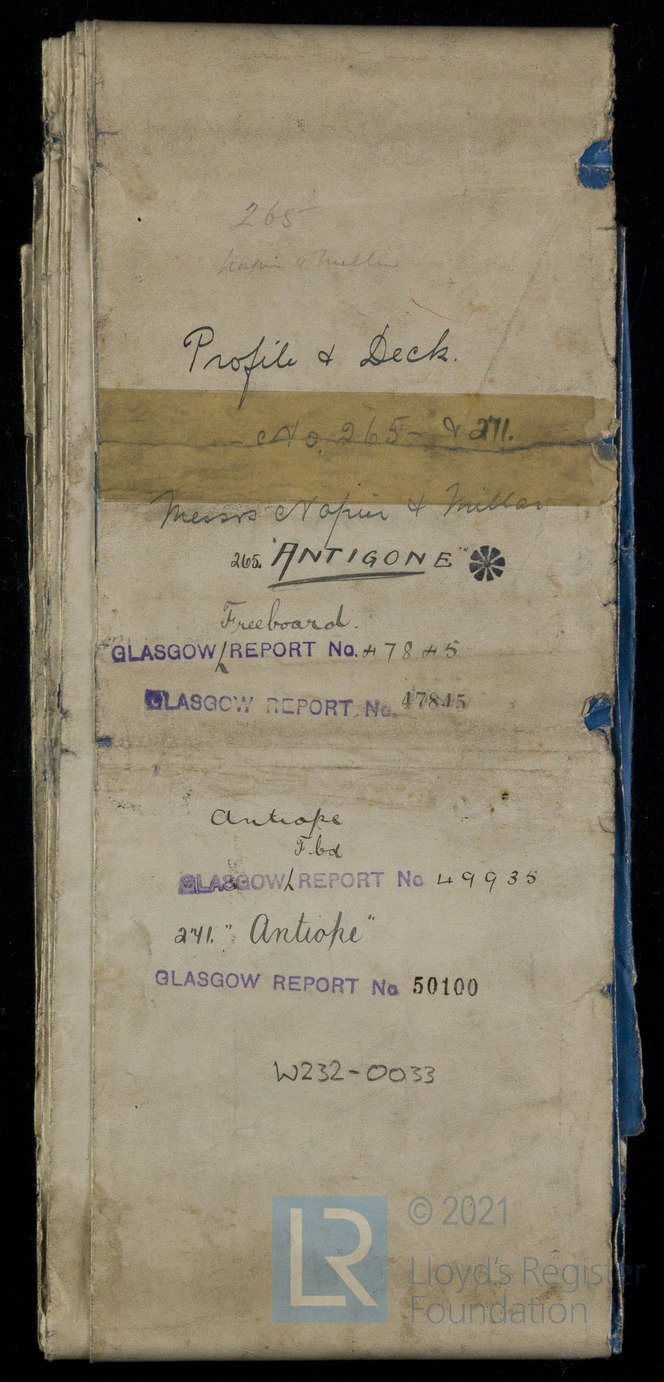 265
Napier & Miller
Profile & Deck.
No. 265 & 271.
Messrs Napier & Millar
265. "ANTIGONE"
Freeboard.
GLASGOW REPORT No. 47845
GLASGOW REPORT. No. 47845
Antiope
Fbd
GLASGOW REPORT No 49935
271. "Antiope"
GLASGOW REPORT No 50100
W232-0033
LR
© 2021
Lloyd's Register
Foundation